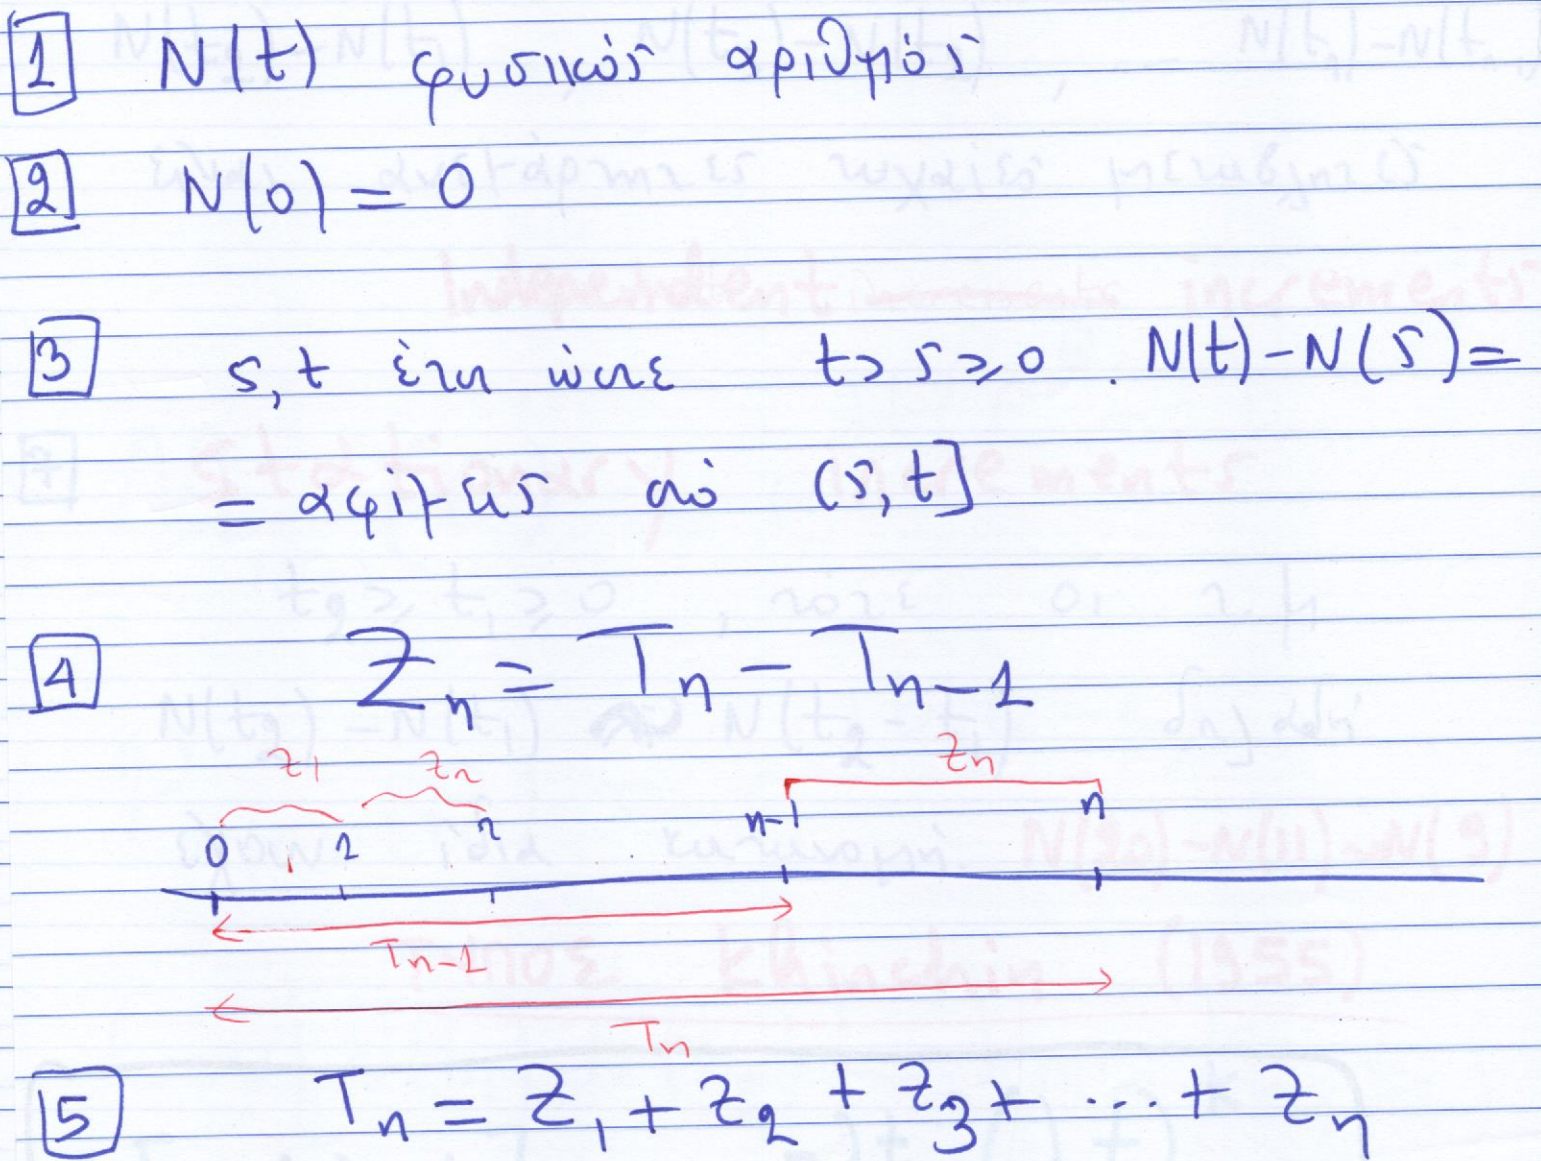 1 N(t) φυσικός αριθμός
2 N(0) = 0
3 s,t έτσι ώστε t > s ≥ 0 . N(t) - N(s) =
= αφίξεις στο (s,t]
4 Zₙ = Tₙ - Tₙ₋₁
z₁ z₂ zₙ
0 1 2 n-1 n
Tₙ₋₁
Tₙ
5 Tₙ = Z₁ + Z₂ + Z₃ + ... + Zₙ